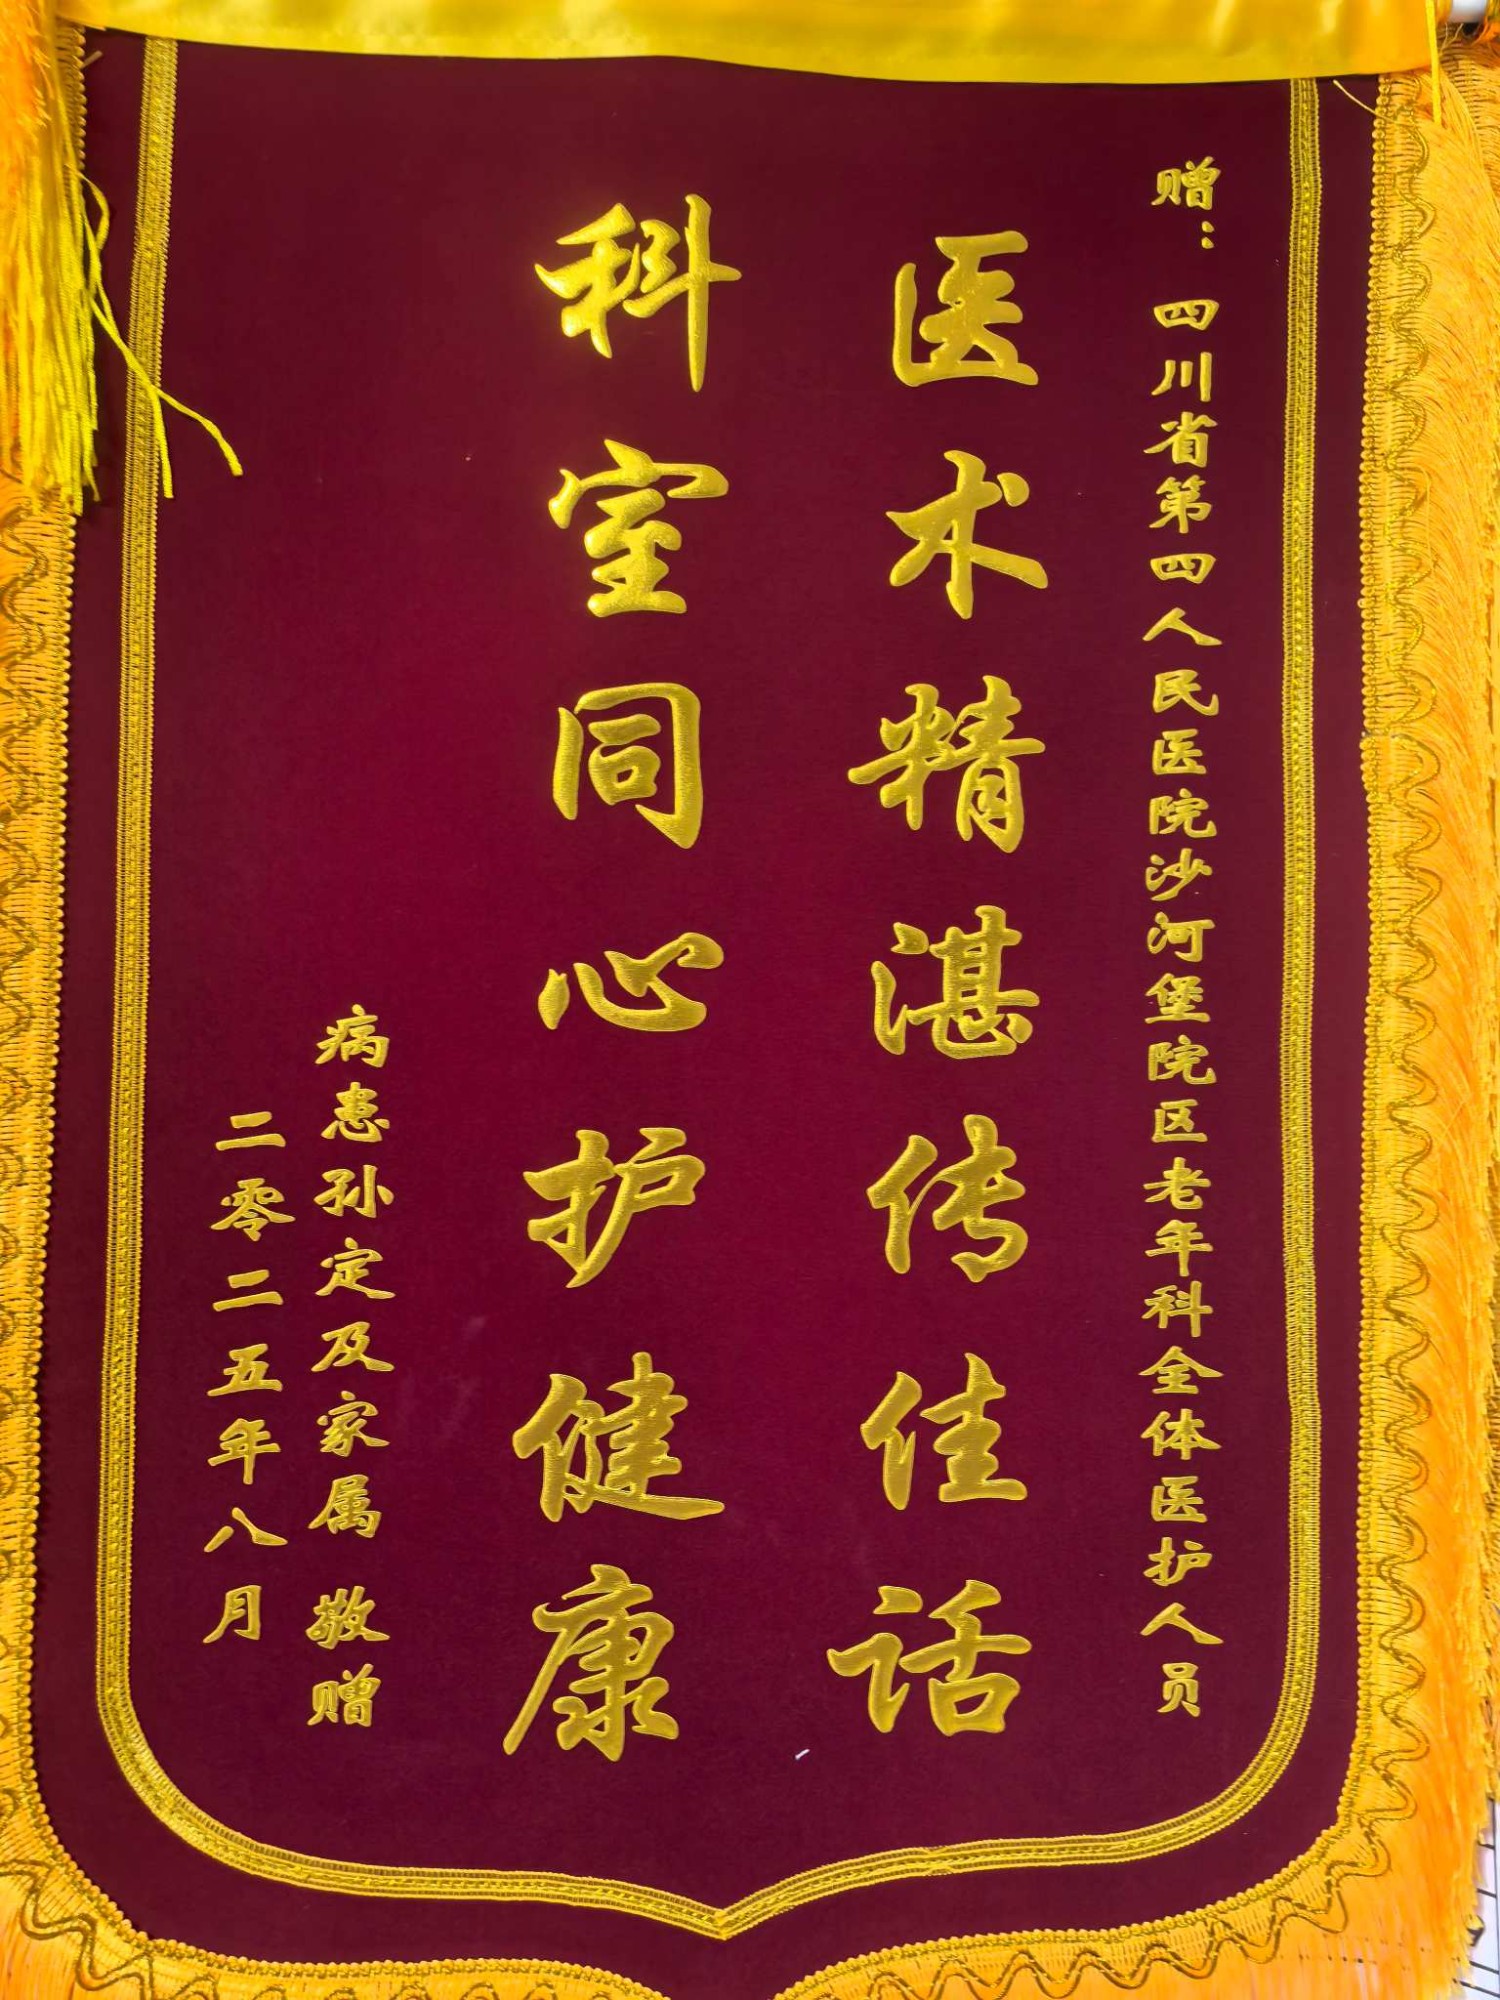 赠：四川省第四人民医院沙河堡院区老年科全体医护人员
医术精湛传佳话
科室同心护健康
病患孙定及家属 敬赠
二零二五年八月